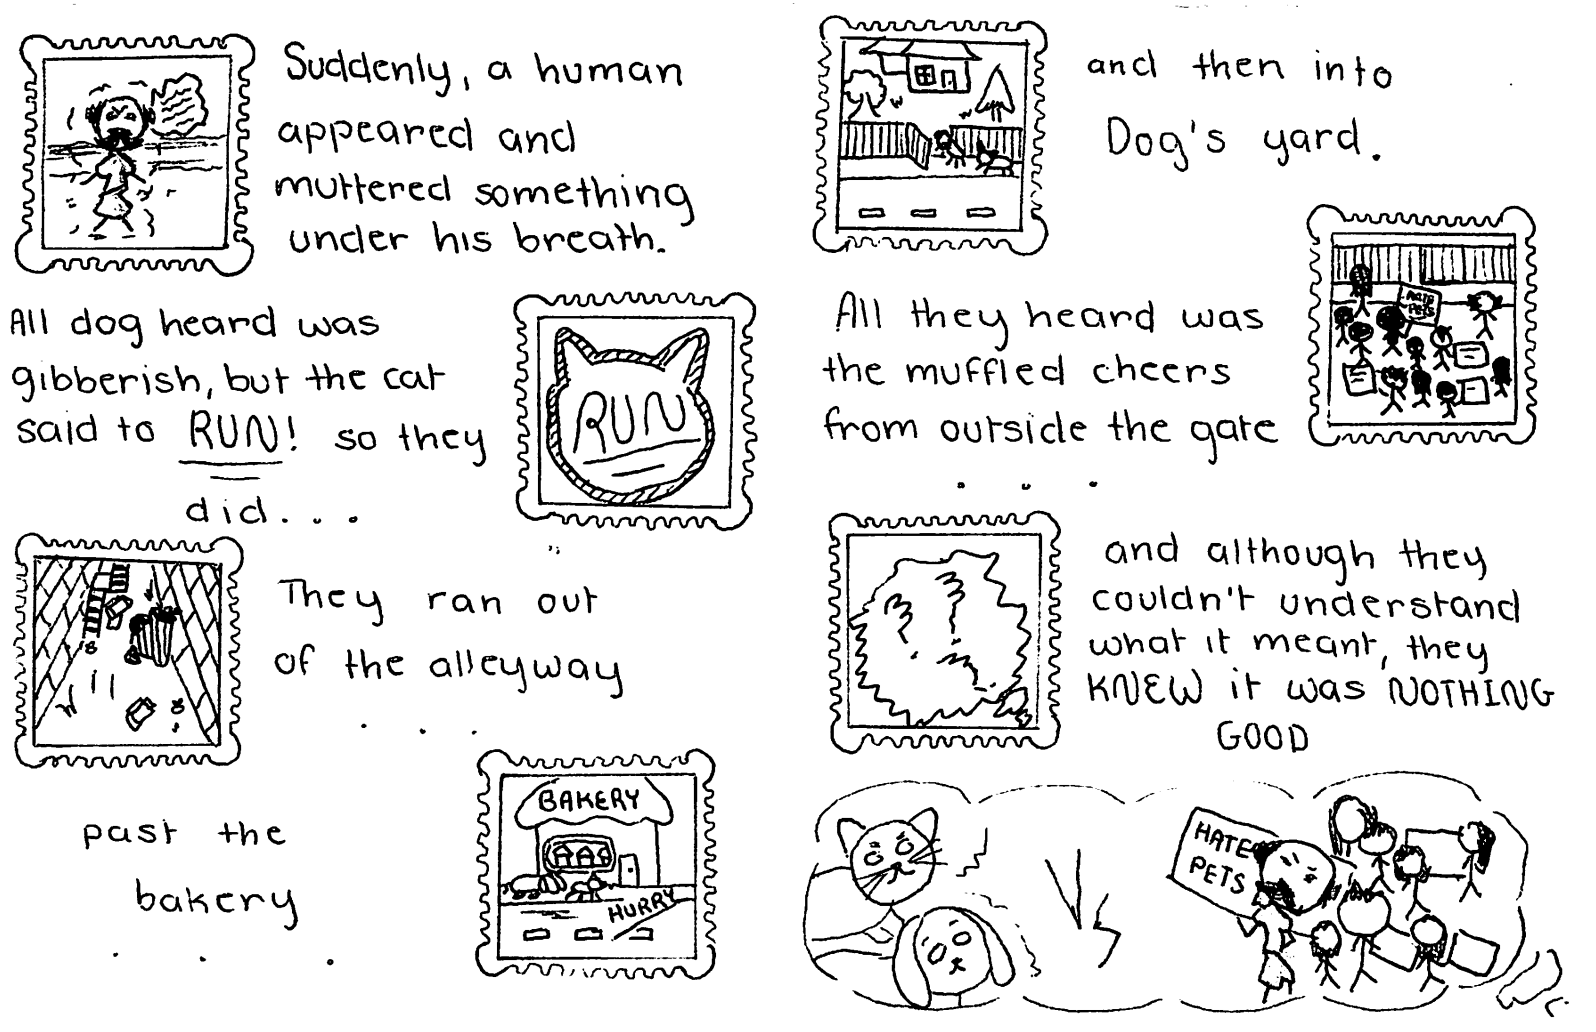 Suddenly, a human
appeared and
muttered something
under his breath.
All dog heard was
gibberish, but the cat
said to RUN! so they
did...
RUN
They ran out
of the alleyway
...
past the
bakery
...
BAKERY
HURRY
and then into
Dog's yard.
All they heard was
the muffled cheers
from outside the gate
...
HATE
PETS
and although they
couldn't understand
what it meant, they
KNEW it was NOTHING
GOOD
HATE
PETS